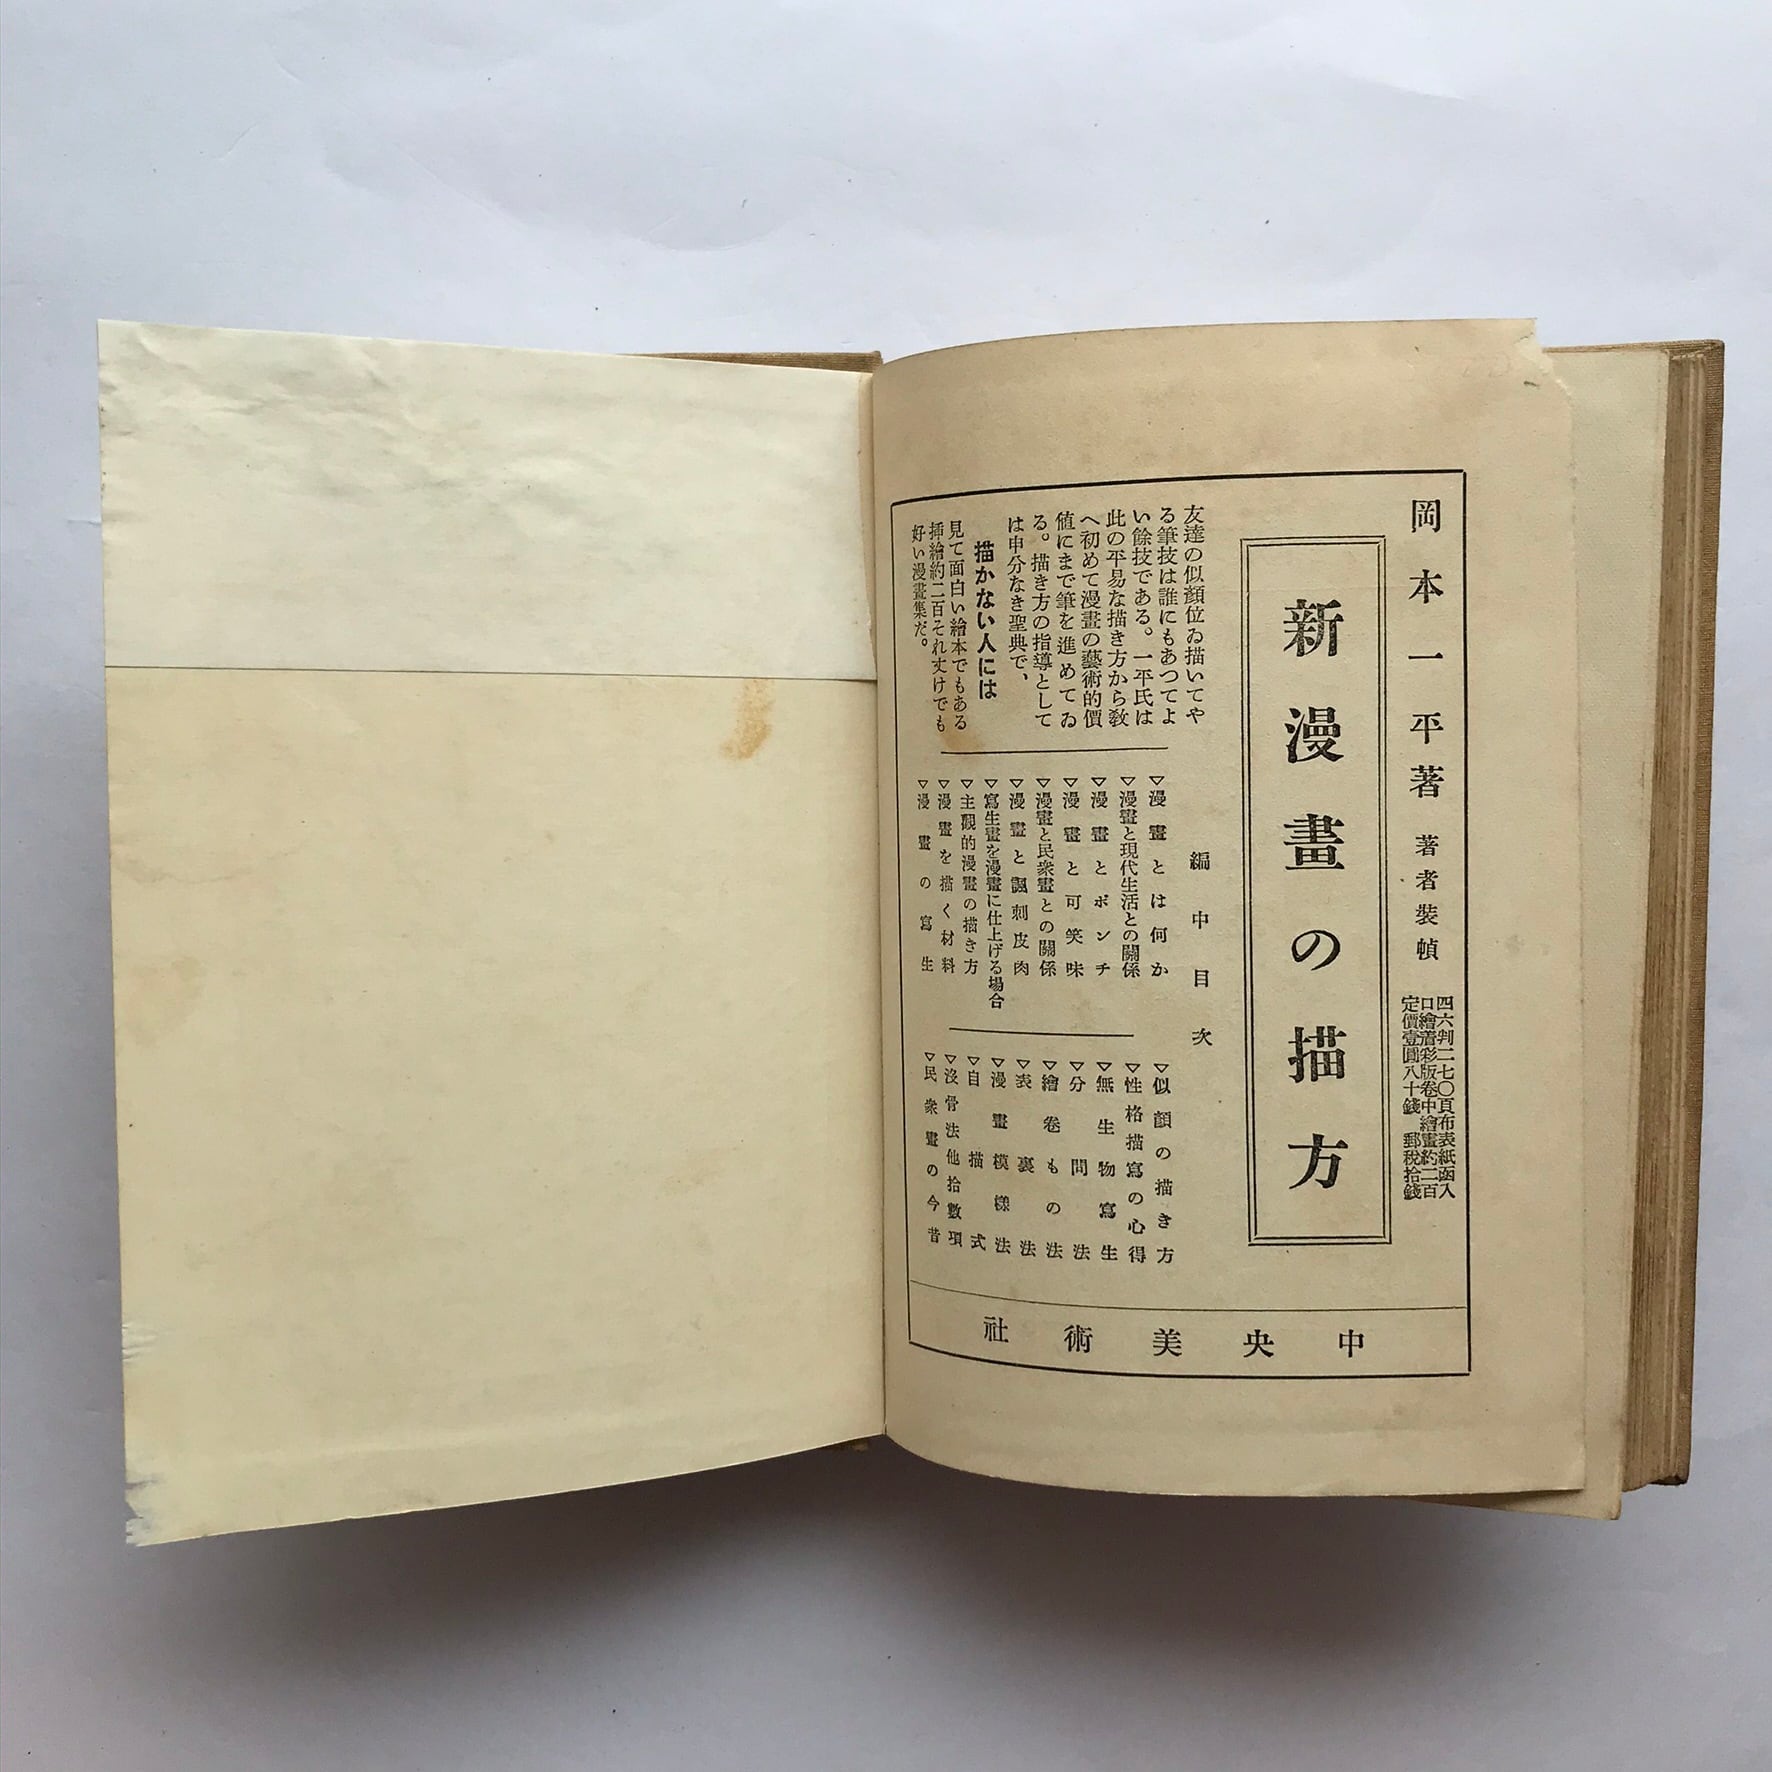 岡本一平著 著者裝幀
四六判二七〇頁布表紙函入
口繪着彩版卷中繪畫約二百
定價壹圓八十錢 郵稅拾錢
新漫畫の描方
友達の似顏位ゐ描いてや
る筆技は誰にもあつてよ
い餘技である。一平氏は
此の平易な描き方から敎
へ初めて漫畫の藝術的價
値にまで筆を進めてゐ
る。描き方の指導として
は申分なき聖典で、
描かない人には
見て面白い繪本でもある
挿繪約二百それ丈けでも
好い漫畫集だ。
編中目次
▽漫畫とは何か
▽漫畫と現代生活との關係
▽漫畫とポンチ
▽漫畫と可笑味
▽漫畫と民衆畫との關係
▽漫畫と諷刺皮肉
▽寫生畫を漫畫に仕上げる場合
▽主觀的漫畫の描き方
▽漫畫を描く材料
▽漫畫の寫生
▽似顏の描き方
▽性格描寫の心得
▽無生物寫生
▽分問法
▽繪卷もの法
▽表裏法
▽漫畫模樣法
▽自描式
▽沒骨法他拾數項
▽民衆畫の今昔
中央美術社